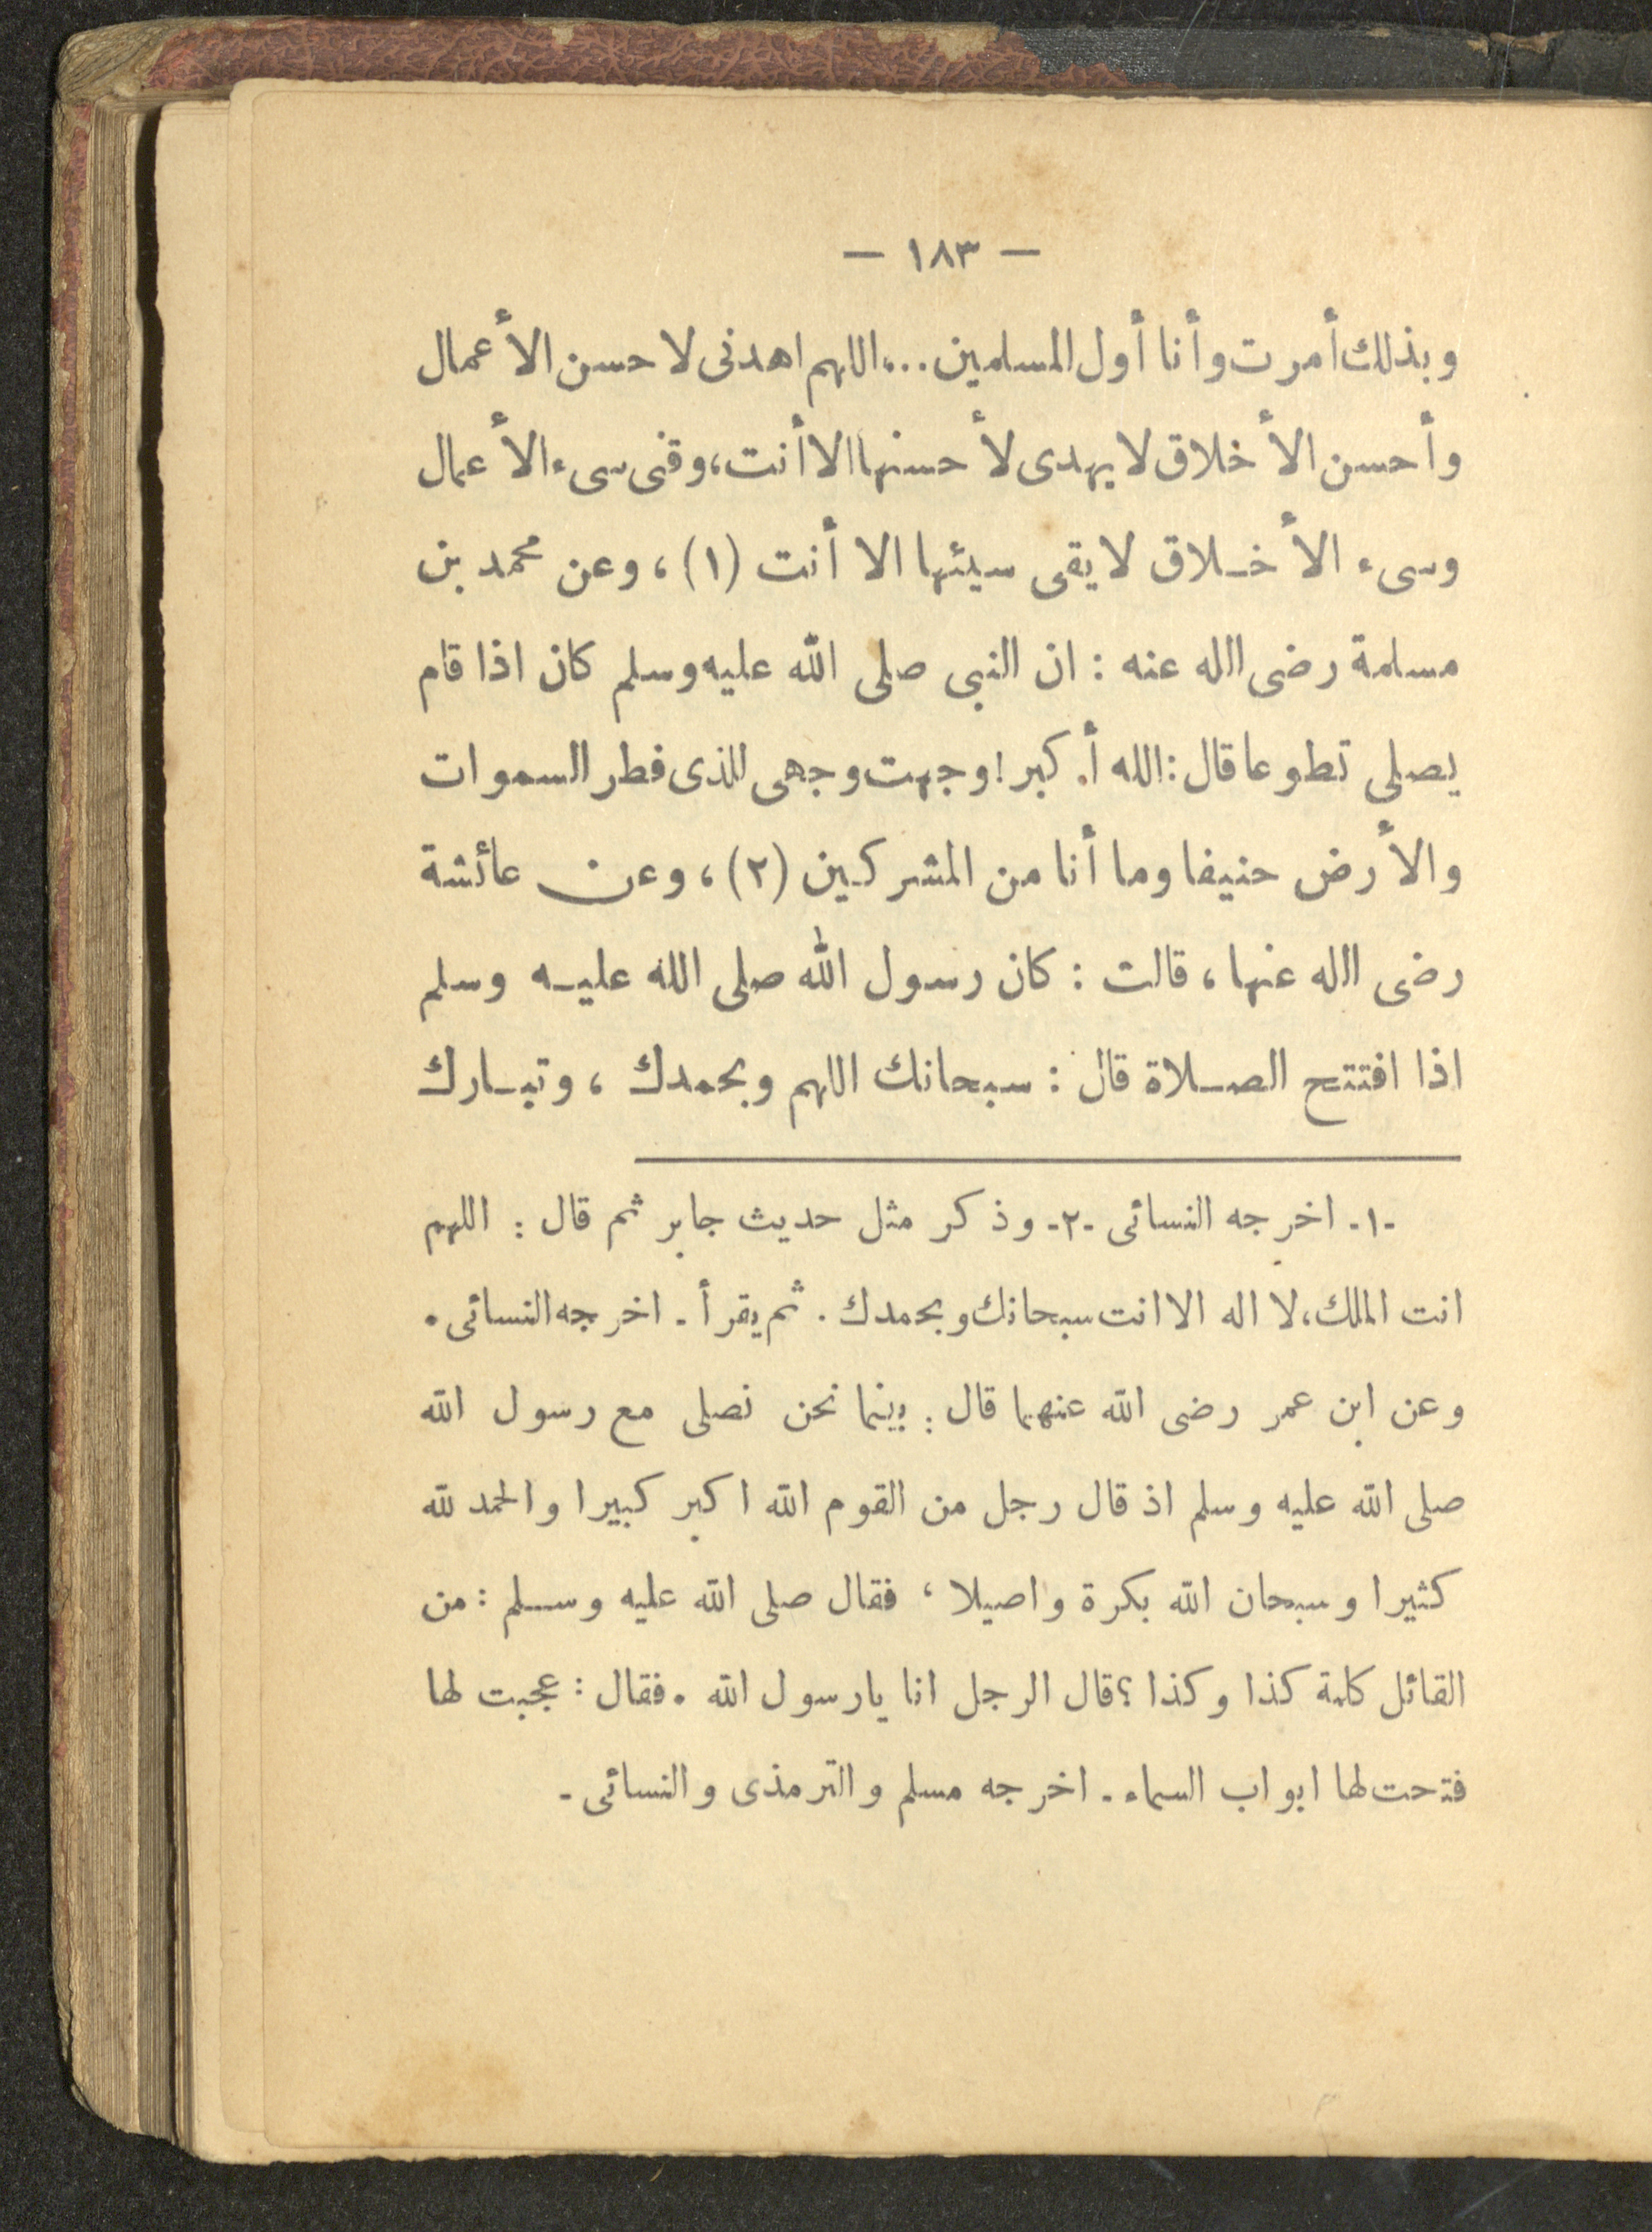 — ١٨٣ —
وبذلك أمرت وأنا أول المسلمين...، اللهم اهدنى لاحسن الأعمال
وأحسن الأخلاق لا يهدى لأحسنها الا أنت، وقنى سىء الأعمال
وسىء الأخــلاق لا يقى سيئها الا أنت (١)، وعن محمد بن
مسلمة رضى الله عنه : ان النبى صلى الله عليه وسلم كان اذا قام
يصلى تطوعا قال : الله أكبر ! وجهت وجهى للذى فطر السموات
والأرض حنيفا وما أنا من المشركين (٢)، وعن عائشة
رضى الله عنها، قالت : كان رسول الله صلى الله عليــه وسلم
اذا افتتح الصــلاة قال : سبحانك اللهم وبحمدك ، وتبــارك
-١- اخرجه النسائى -٢- وذكر مثل حديث جابر ثم قال : اللهم
انت الملك، لا اله الا انت سبحانك وبحمدك . ثم يقرأ - اخرجه النسائى .
وعن ابن عمر رضى الله عنهما قال : بينما نحن نصلى مع رسول الله
صلى الله عليه وسلم اذ قال رجل من القوم الله اكبر كبيرا والحمد لله
كثيرا وسبحان الله بكرة واصيلا ، فقال صلى الله عليه وســلم : من
القائل كلمة كذا وكذا ؟ قال الرجل انا يارسول الله . فقال : عجبت لها
فتحت لها ابواب السماء - اخرجه مسلم والترمذى والنسائى -